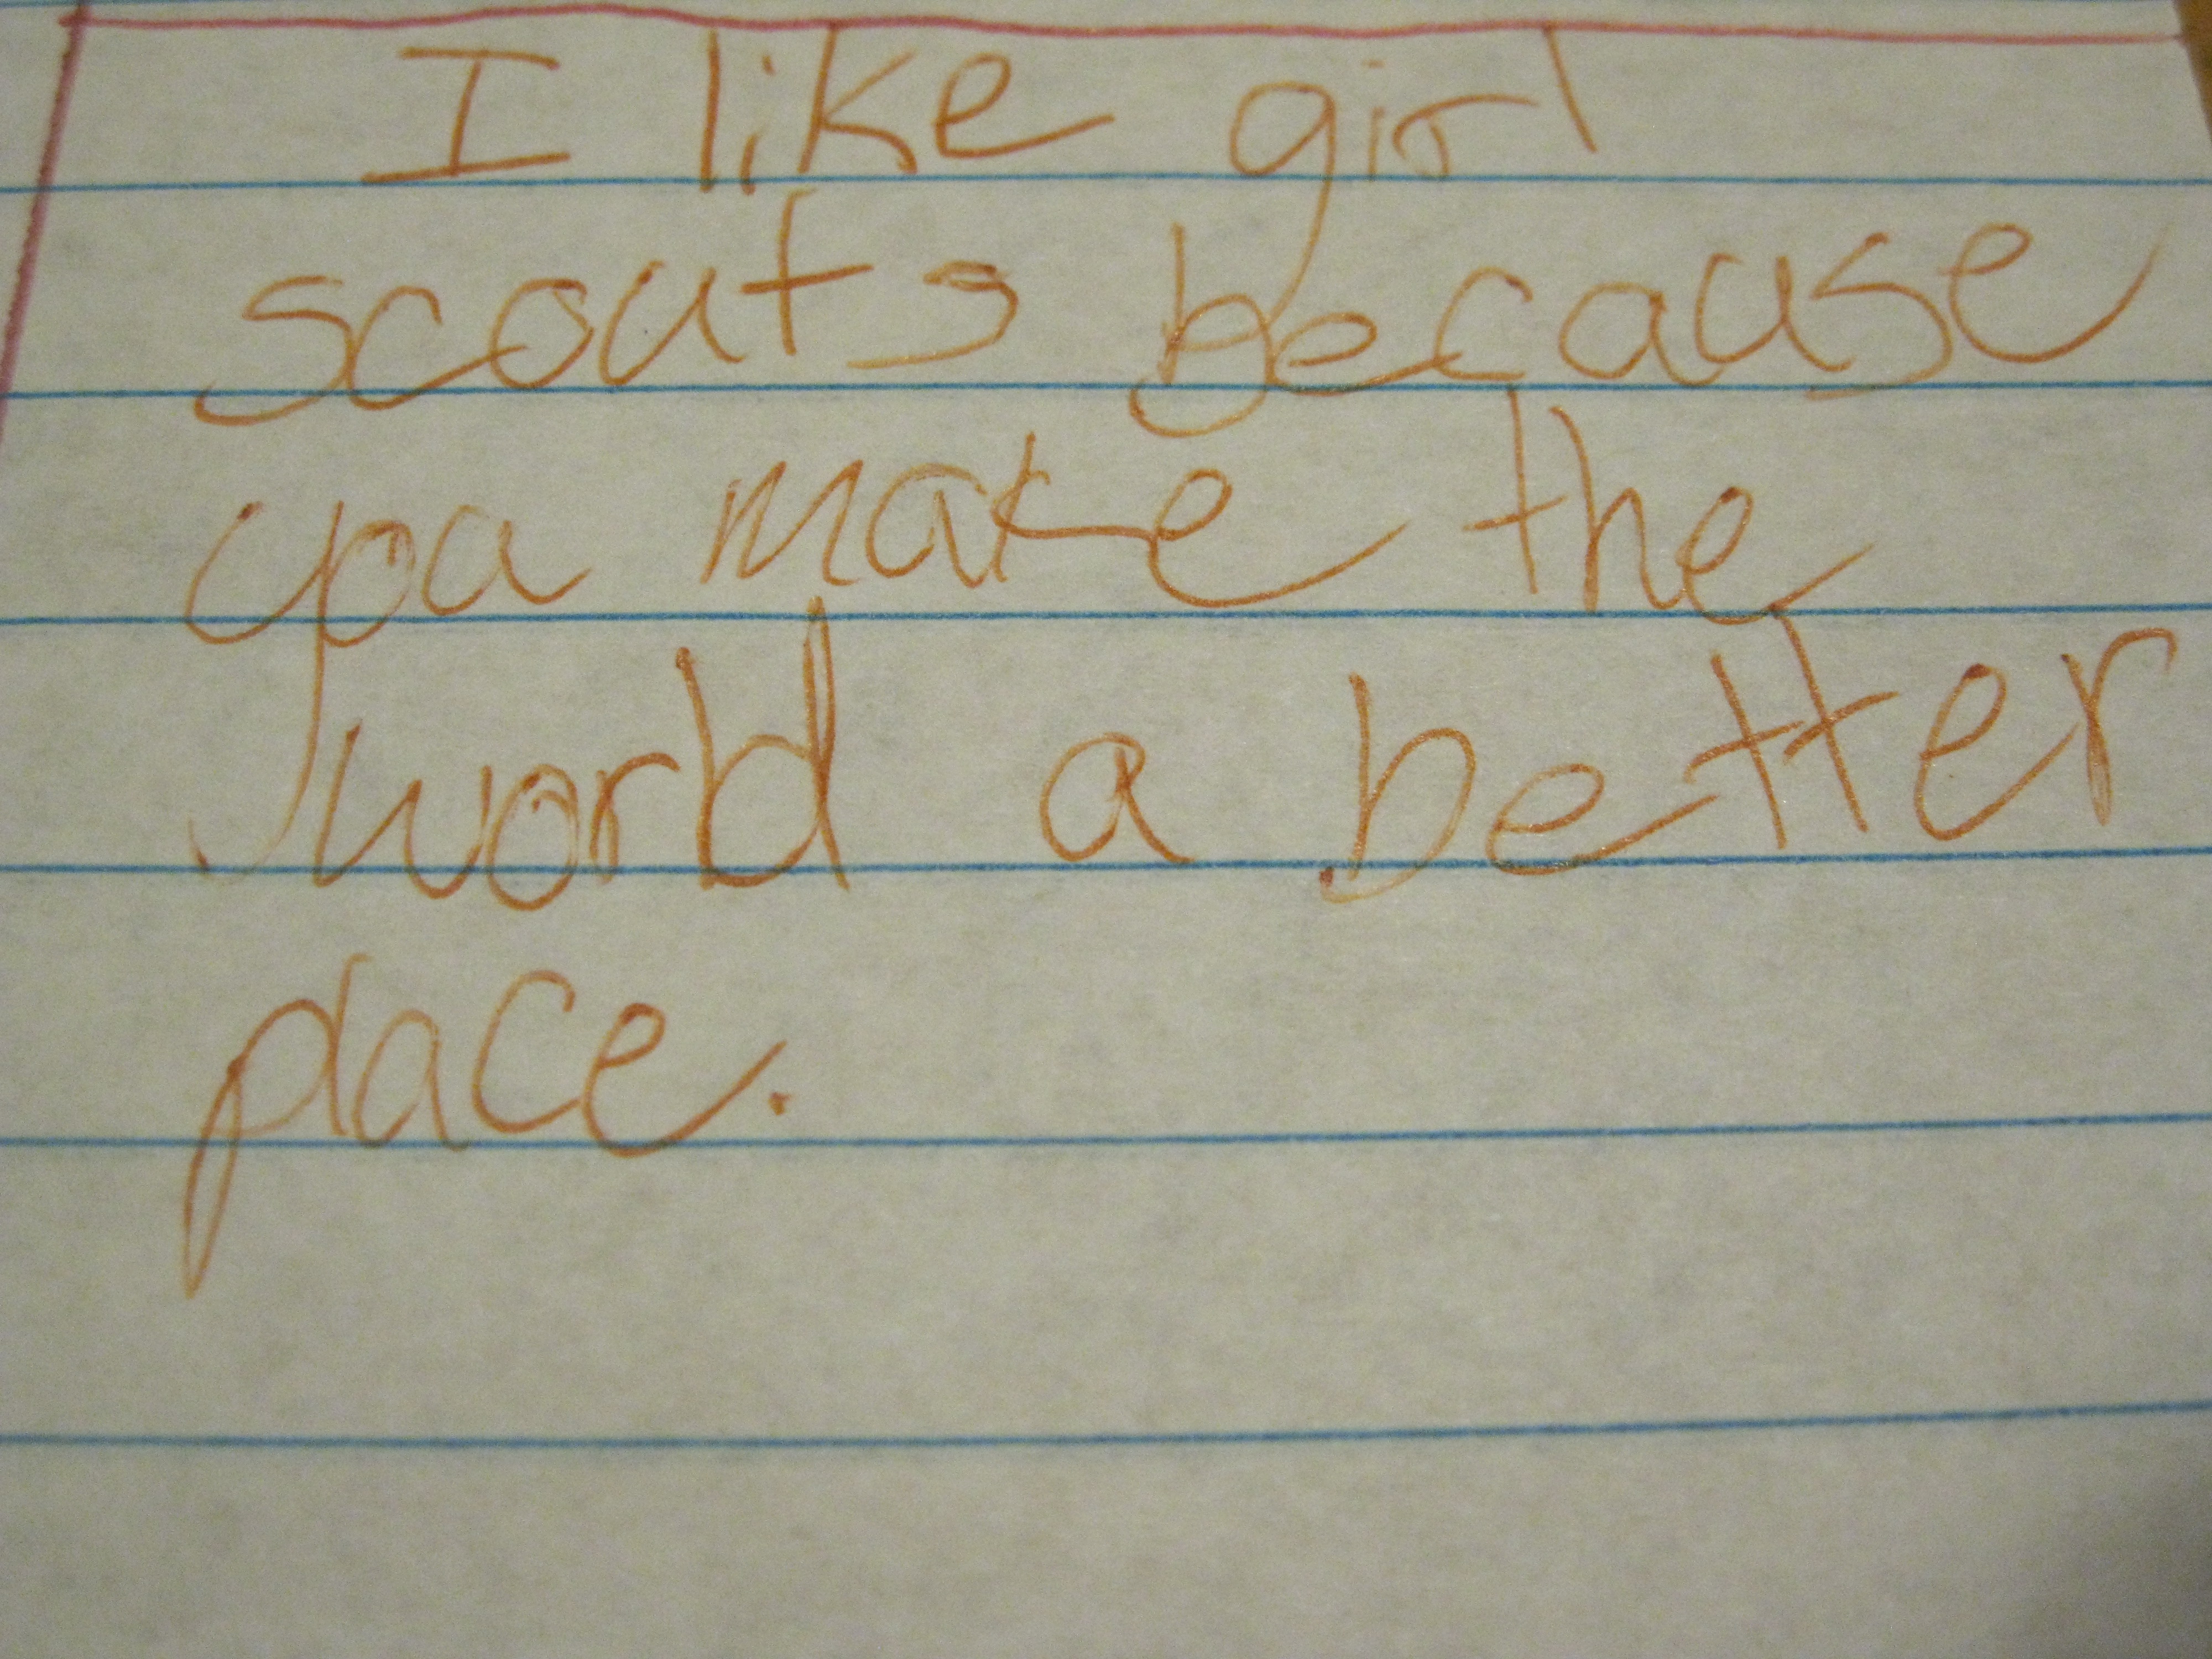 I like girl
scouts because
you make the
world a better
place.